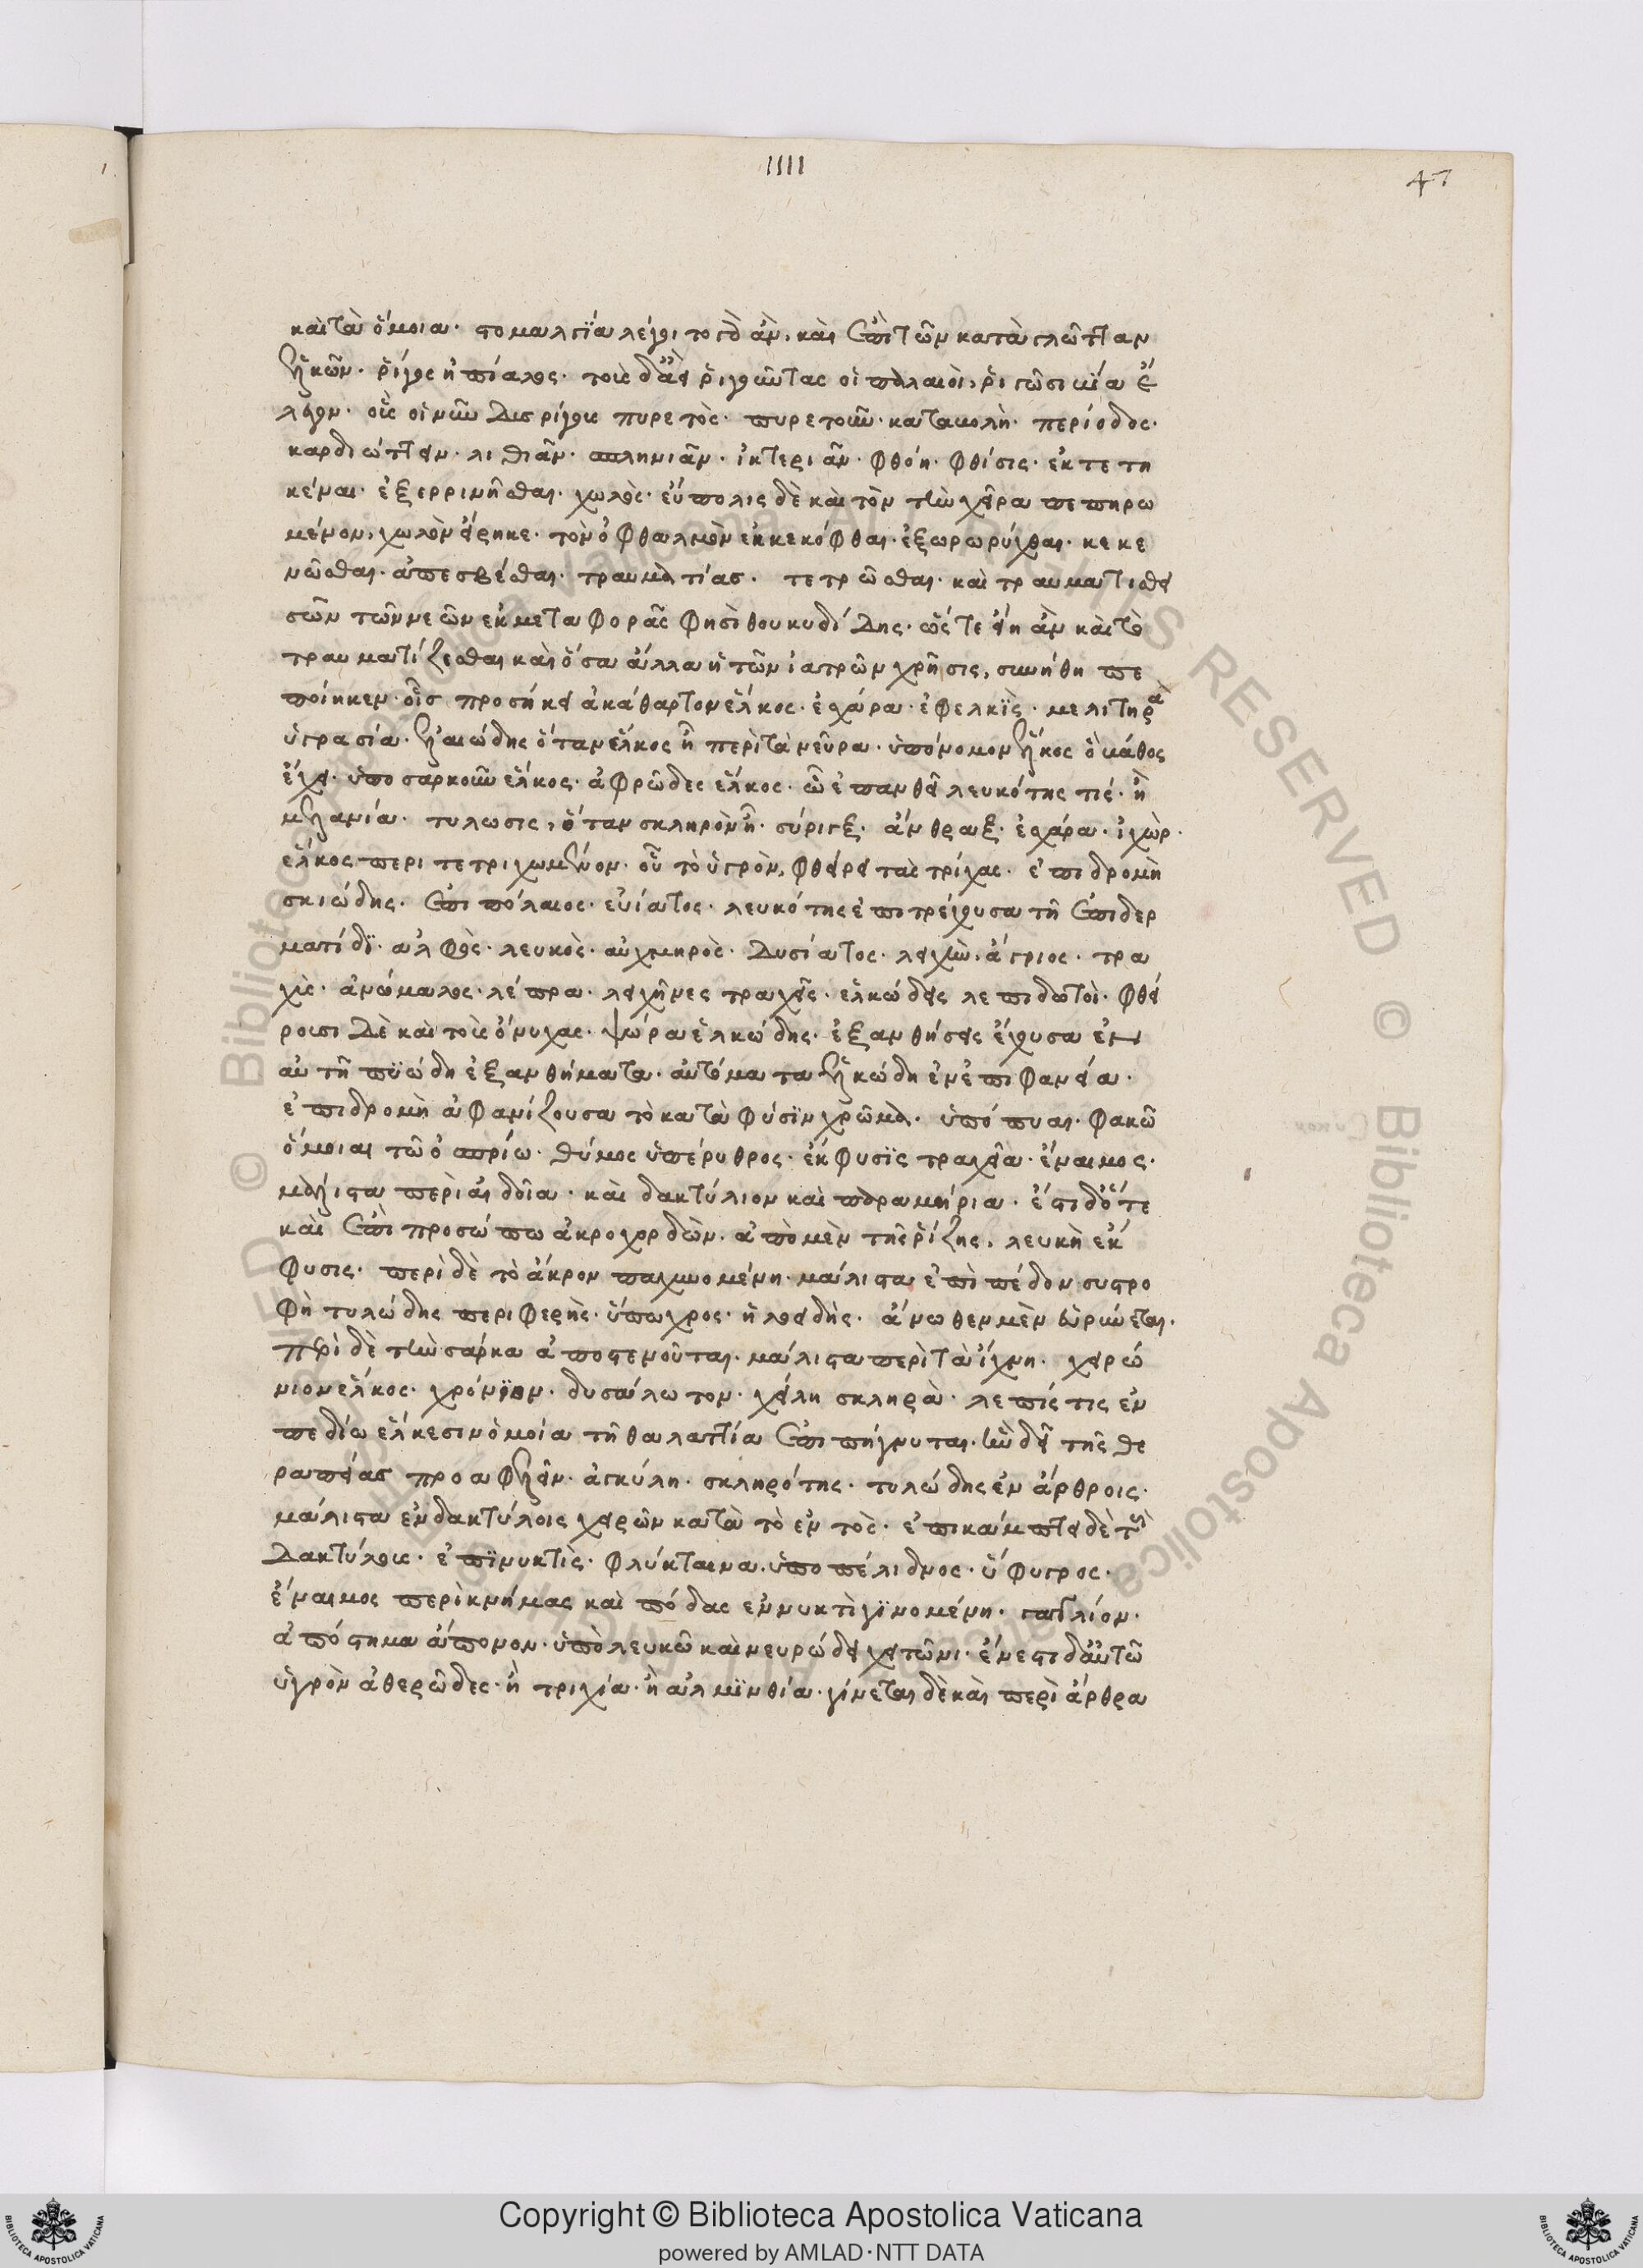 IIII
47
καὶ τὰ ὅμοια· στομαλγία λέγοιτο δ' ἄν, καὶ ἐπὶ τῶν κατὰ γλῶτταν
ἑλκῶν· ῥίγος ἠπίαλος· τοὺς δὲ ῥιγοῦντας οἱ παλαιοὶ, ῥιγῶσι μία ἔ
λεγον· οὓς οἱ νῦν διὰ ῥίγους πυρετὸς· πυρετοῦ· καταβολὴ· περίοδος·
καρδιώττειν· λιθιᾶν· σπληνιᾶν· ἰκτεριᾶν· φθόη· φθίσις· ἐκτετη
κέναι· ἐξερρινῆσθαι· χωλὸς· εὔπολις δὲ καὶ τὸν τὴν χεῖρα πεπηρω
μένον, χωλὸν εἴρηκε· τὸν ὀφθαλμὸν ἐκκεκόφθαι· ἐξωρωρύχθαι· κεκε
νῶσθαι· ἀπεσβέσθαι· τραυματίας· τετρῶσθαι· καὶ τραυματισθει
σῶν τῶν νεῶν ἐκ μεταφορᾶς φησὶ θουκυδίδης· ὥστε εἴη ἂν καὶ τὸ
τραυματίζεσθαι καὶ ὅσα ἄλλα ἡ τῶν ἰατρῶν χρῆσις, συνήθη πε
ποίηκεν· οἷς προσήκει ἀκάθαρτον ἕλκος· ἐσχάρα· ἐφελκὶς· μελιτηρὰ
ὑγρασία· ἑλαιώδης ὅταν ἕλκος ἦ περὶ τὰ νεῦρα· ὑπόνομον ἕλκος ὃ βάθος
ἔχει· ὑποσαρκοῦν ἕλκος· ἀφρῶδες ἕλκος· ὧ ἐπανθεῖ λευκότης τίς· ἢ
μελανία· τυλωσις, ὅταν σκληρὸν ἦ· σύριγξ· ἄνθραξ· ἐσχάρα· ἰχὼρ·
ἕλκος περιτετριχωμένον· οὗ τὸ ὑγρὸν, φθείρει τὰς τρίχας· ἐπιδρομὴ
σκιώδης· ἐπιπόλαιος· εὐίατος· λευκότης ἐπιτρέχουσα τῆ ἐπιδερ
ματίδι· ἀλφὸς· λευκὸς· αὐχμηρὸς· δυσίατος· λειχὴν· ἄγριος· τρα
χὺς· ἀνώμαλος· λέπρα· λειχῆνες τραχεῖς· ἑλκώδεις λεπιδωτοὶ· φθεί
ρουσι δὲ καὶ τοὺς ὄνυχας· ψώρα ἑλκώδης· ἐξανθήσεις ἔχουσα ἐν
αὐτῆ πυώδη ἐξανθήματα· αὐτόματα ἑλκώδη ἐν ἐπιφανεία·
ἐπιδρομὴ ἀφανίζουσα τὸ κατὰ φύσιν χρῶμα· ὑπόπυαι· φακῶ
ὅμοιαι τῶ ὀσπρίω· θύμος ὑπέρυθρος· ἔκφυσις τραχεῖα· ἔναιμος·
μάλιστα περὶ αἰδοῖα· καὶ δακτύλιον καὶ παραμήρια· ἔστι δ' ὅτε
καὶ ἐπὶ προσώπω ἀκροχορδὼν· ἀπὸ μὲν τῆς ῥίζης, λευκὴ ἔκ
φυσις· περὶ δὲ τὸ ἄκρον παχυνομένη· μάλιστα ἐπὶ πέδον συστρο
φὴ τυλώδης περιφερὴς· ὕπωχρος· ἡλοειδὴς· ἄνωθεν μὲν εὐρύνεται·
περὶ δὲ τὴν σάρκα ἀποστενοῦται· μάλιστα περὶ τὰ ἴχνη· χειρώ
νιον ἕλκος· χρόνιον· δυσάλωτον· χείλη σκληρὰ· λεπίς τις ἐν
πεδίω ἕλκεσιν ὁμοία τῆ θαλαττία ἐπιπήγνυται· ἣν δεῖ τῆς θε
ραπείας προαφελεῖν· ἀγκύλη· σκληρότης· τυλώδης ἐν ἄρθροις·
μάλιστα ἐν δακτύλοις χειρῶν κατὰ τὸ ἐντὸς· ἐπικάμπτει δὲ τοὺς
δακτύλους· ἐπινυκτὶς· φλύκταινα· ὑποπέλιδνος· ὕφυγρος·
ἔναιμος περὶ κνήμας καὶ πόδας ἐν νυκτὶ γινομένη· γαγγλίον·
ἀπόστημα ἄπονον· ὑπὸ λευκῶ καὶ νευρώδει χιτῶνι· ἔνεστι δ' αὐτῶ
ὑγρὸν ἀθερῶδες· ἢ τριχία· ἢ ἀλμίνθια· γίνεται δὲ καὶ περὶ ἄρθρα
Copyright © Biblioteca Apostolica Vaticana
powered by AMLAD·NTT DATA